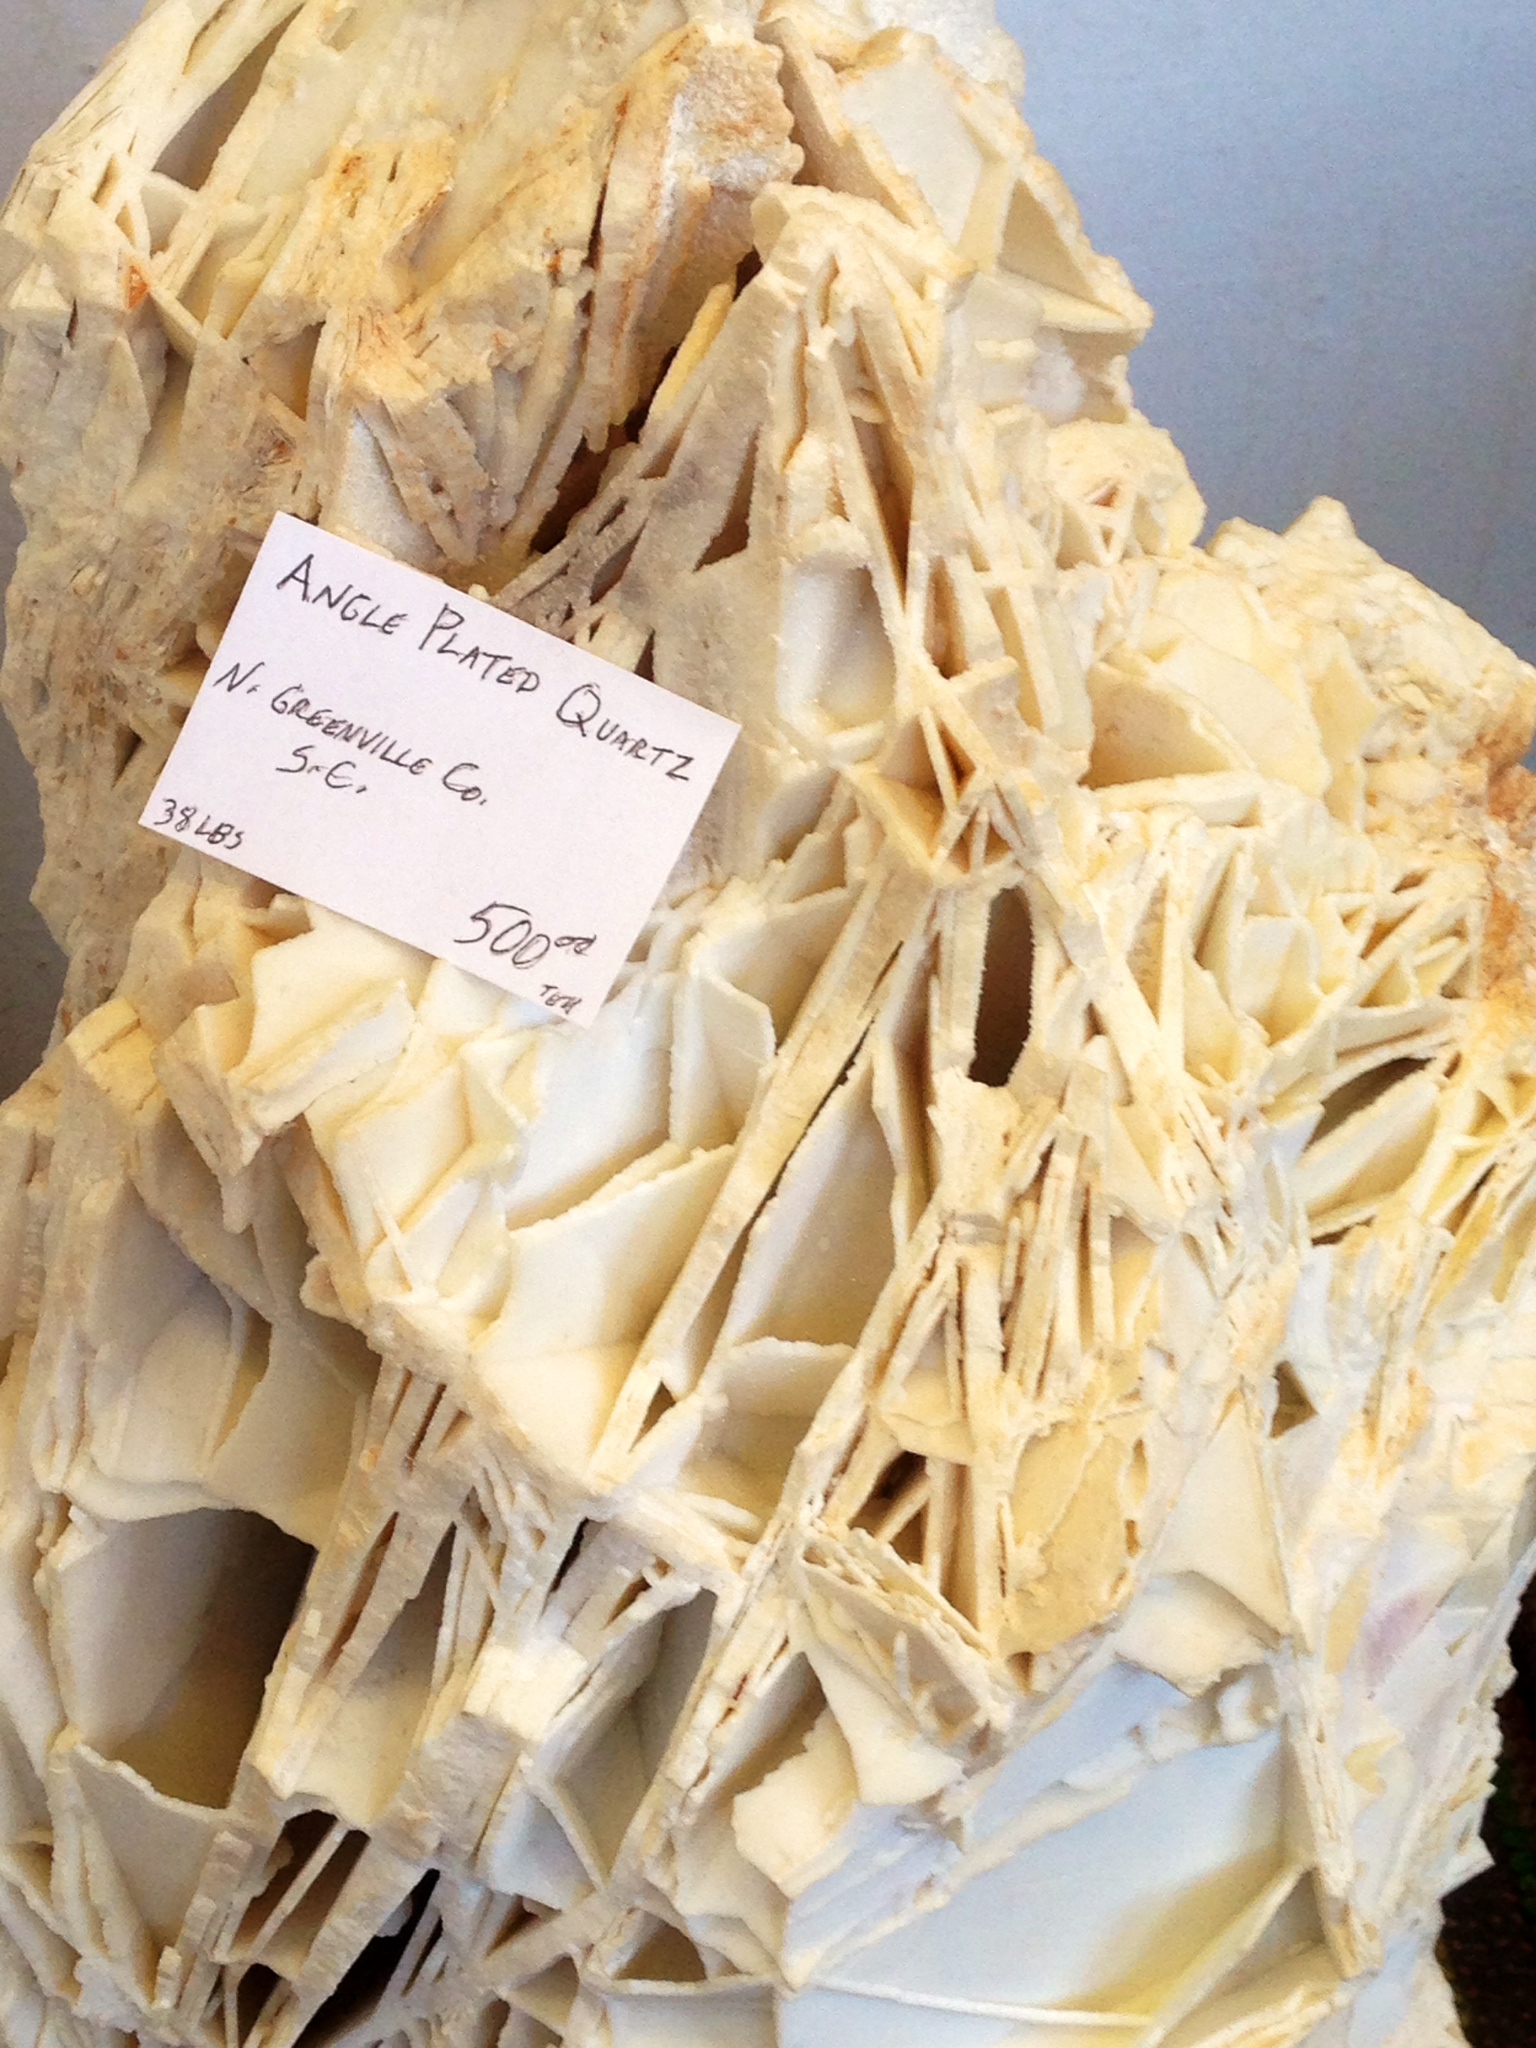 ANGLE PLATED QUARTZ
N. GREENVILLE CO.
S.C.
38 LBS
500.00